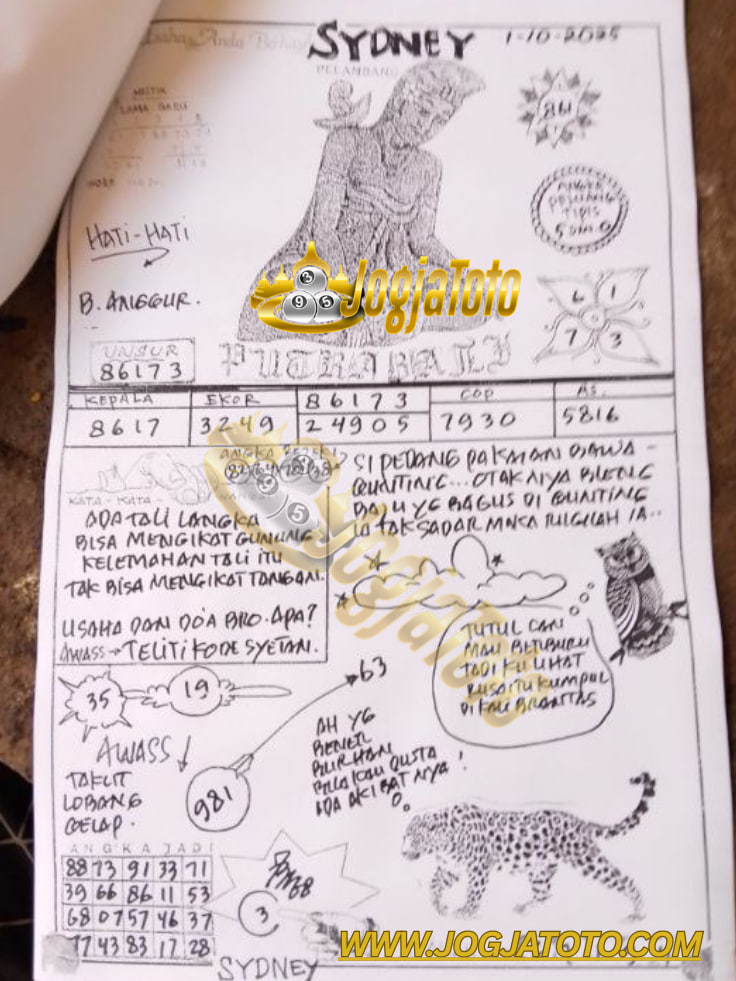 SYDNEY 1-10-2025
PELAMBANG
MISTIK
LAMA BARU
84
ANGKA
PELUANG
TIPIS
HATI-HATI
B. ANGGUR.
JogjaToto
3
9 5
6 1
7 3
UNSUR
86173
PUTRA BALI
KEPALA EKOR 86173 COP AS.
8617 3249 24905 7930 5816
SI PEDANG PAKAIAN DJAWA -
GUNTING... OTAK NIYA BLENG
BAJU YG BAGUS DI GUNTING
IA TAK SADAR MAKA RUGILAH IA..
KATA - KATA -
ADA TALI LANGKA
BISA MENGIKAT GUNUNG
KELEMAHAN TALI ITU
TAK BISA MENGIKAT TANGAN.
USAHA DAN DO'A BRO. APA?
AWASS → TELITI KODE SYETAN.
JogjaToto
5
TUTUL CARI
MAU BERBURU
TADI KU LIHAT
RUSA ITU KUMPUL
DI KALI BRANTAS
35 19 63
AWASS!
TAKUT
LOBANG
GELAP.
981
AH YG
BENER
BURHAN
BILA KAU DUSTA
ADA AKIBAT NIYA !
ANGKA JADI
88 73 91 33 71
39 66 86 11 53
68 07 57 46 37
77 43 83 17 28
3
SYDNEY
WWW.JOGJATOTO.COM